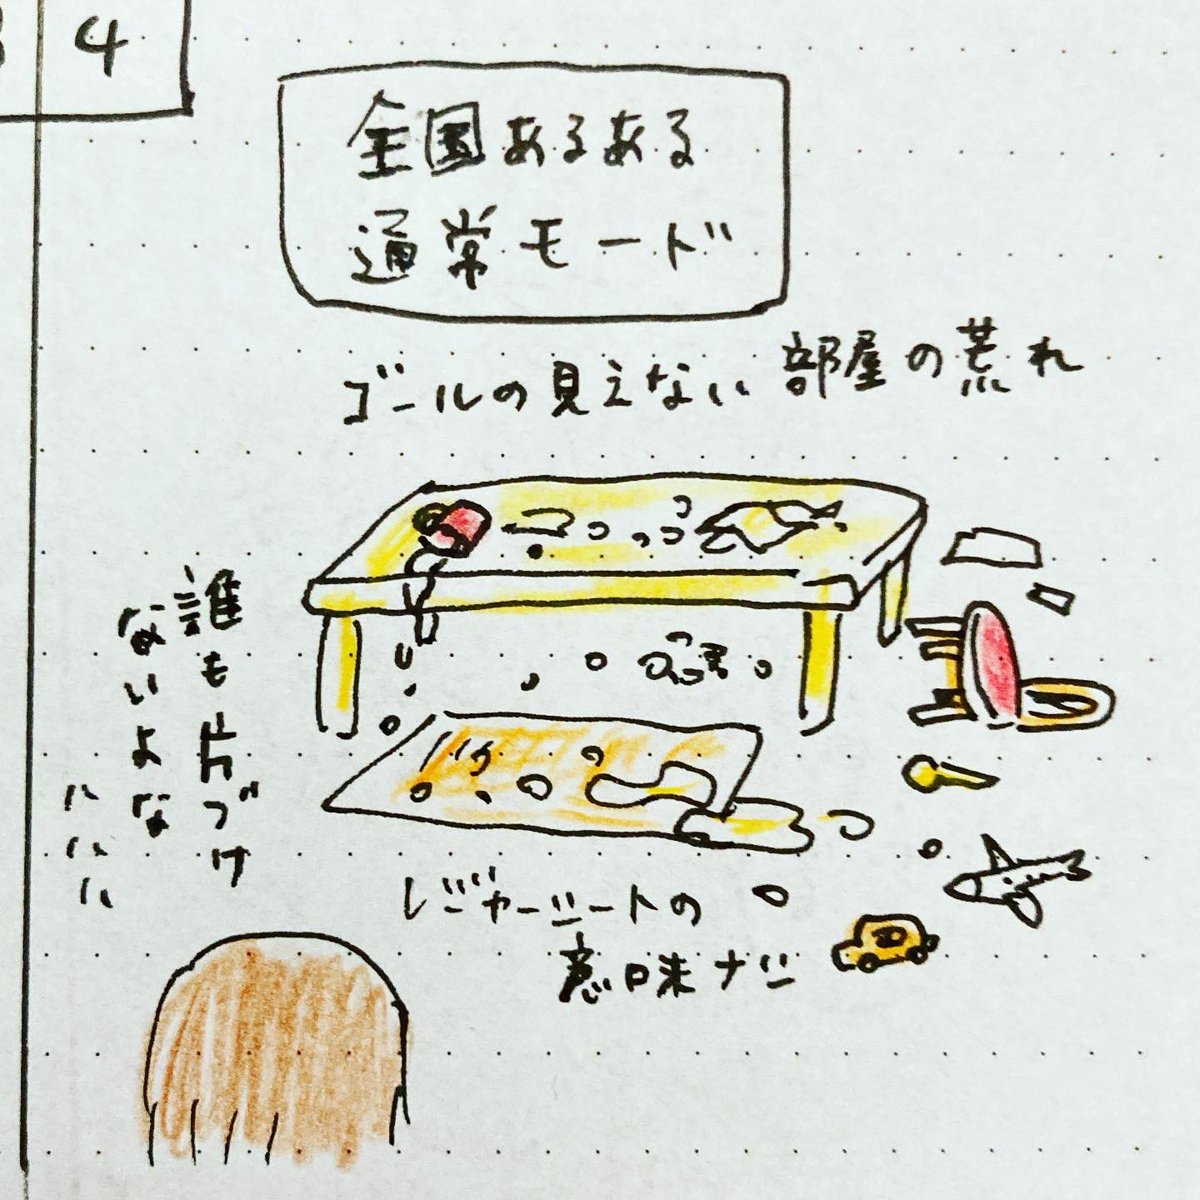 4
全国あるある
通常モード
ゴールの見えない部屋の荒れ
誰も片づけ
ないよな
ハハハ
レジャーシートの
意味ナシ